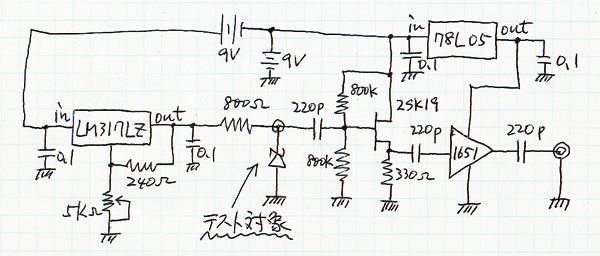 9V
9V
in
78L05
out
0.1
0.1
in
LM317LZ
out
800Ω
220p
800k
2SK19
0.1
0.1
240Ω
5KΩ
800k
220p
330Ω
1651
220p
テスト対象